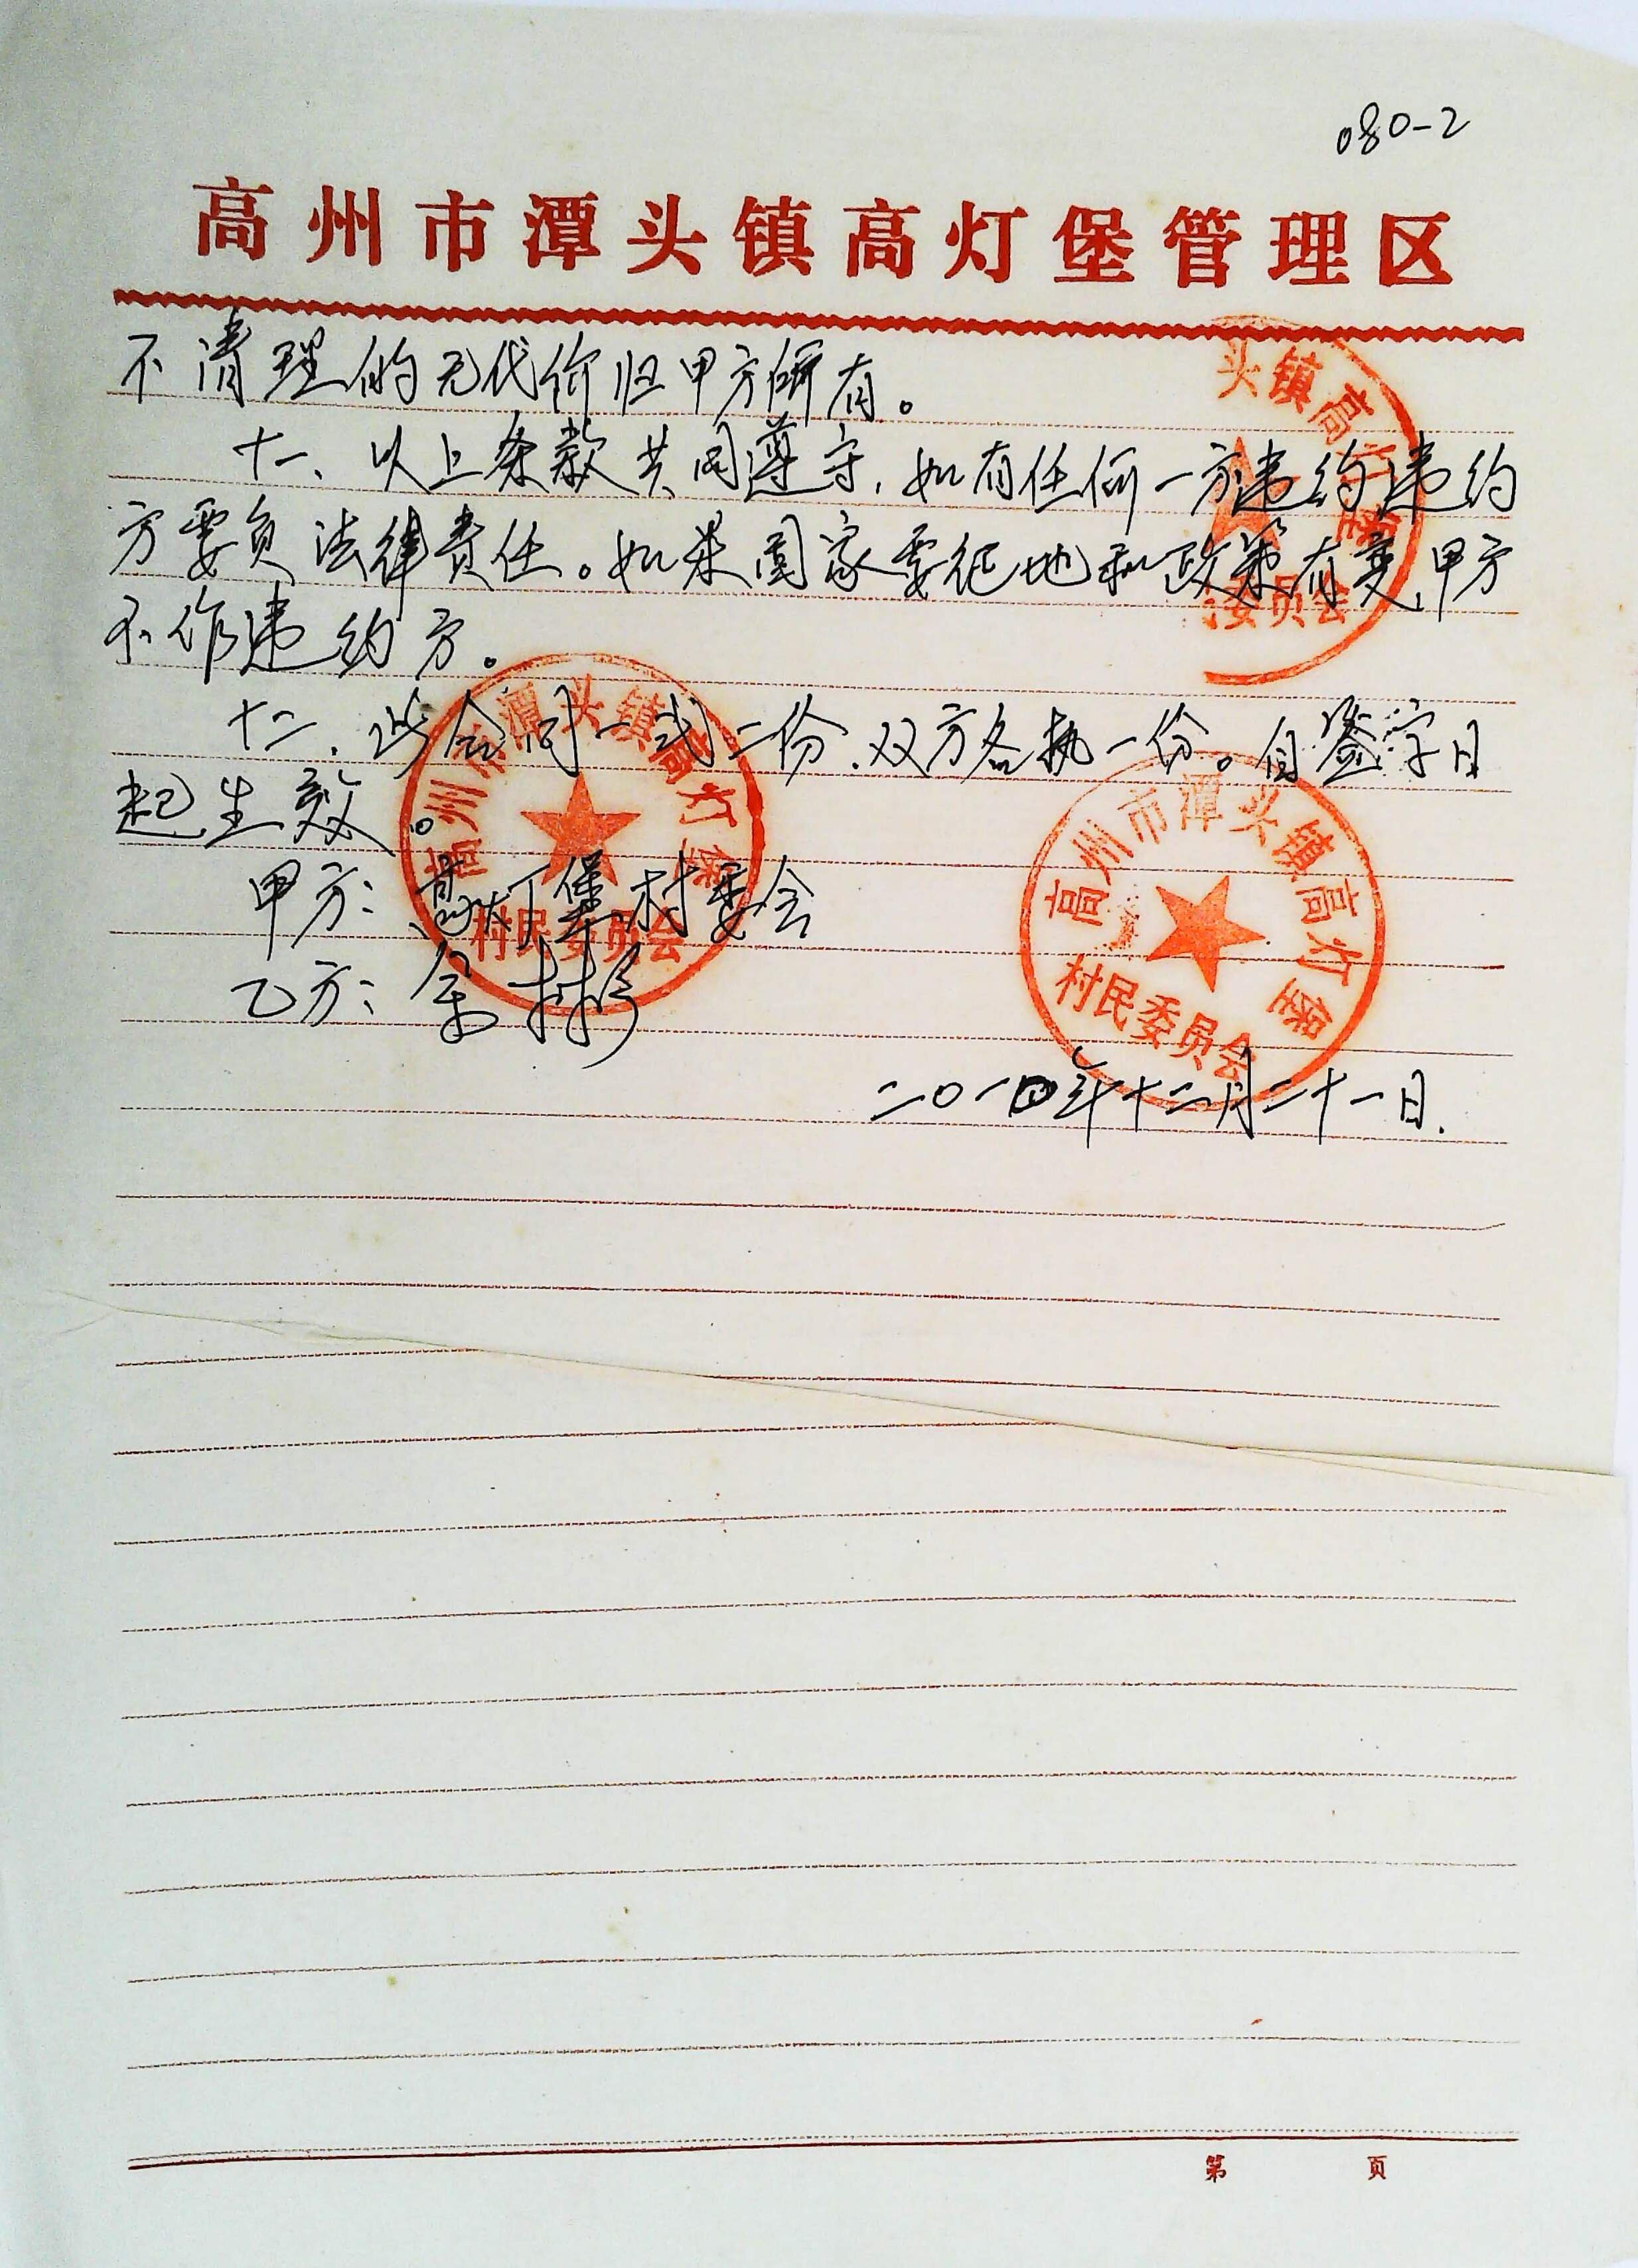 080-2
高州市潭头镇高灯堡管理区
不清理的无代价归甲方所有。
十一、以上条款共同遵守,如有任何一方违约违约
方要负法律责任。如果国家要征地和政策有变,甲方
不作违约方。
十二、此合同一式二份、双方各执一份。自签字日
起生效。
甲方:高灯堡村委会
乙方:
二〇一〇年十二月二十一日.
头镇高灯堡
委员会
高州市潭头镇高灯堡
村民委员会
高州市潭头镇高灯堡
村民委员会
第 页